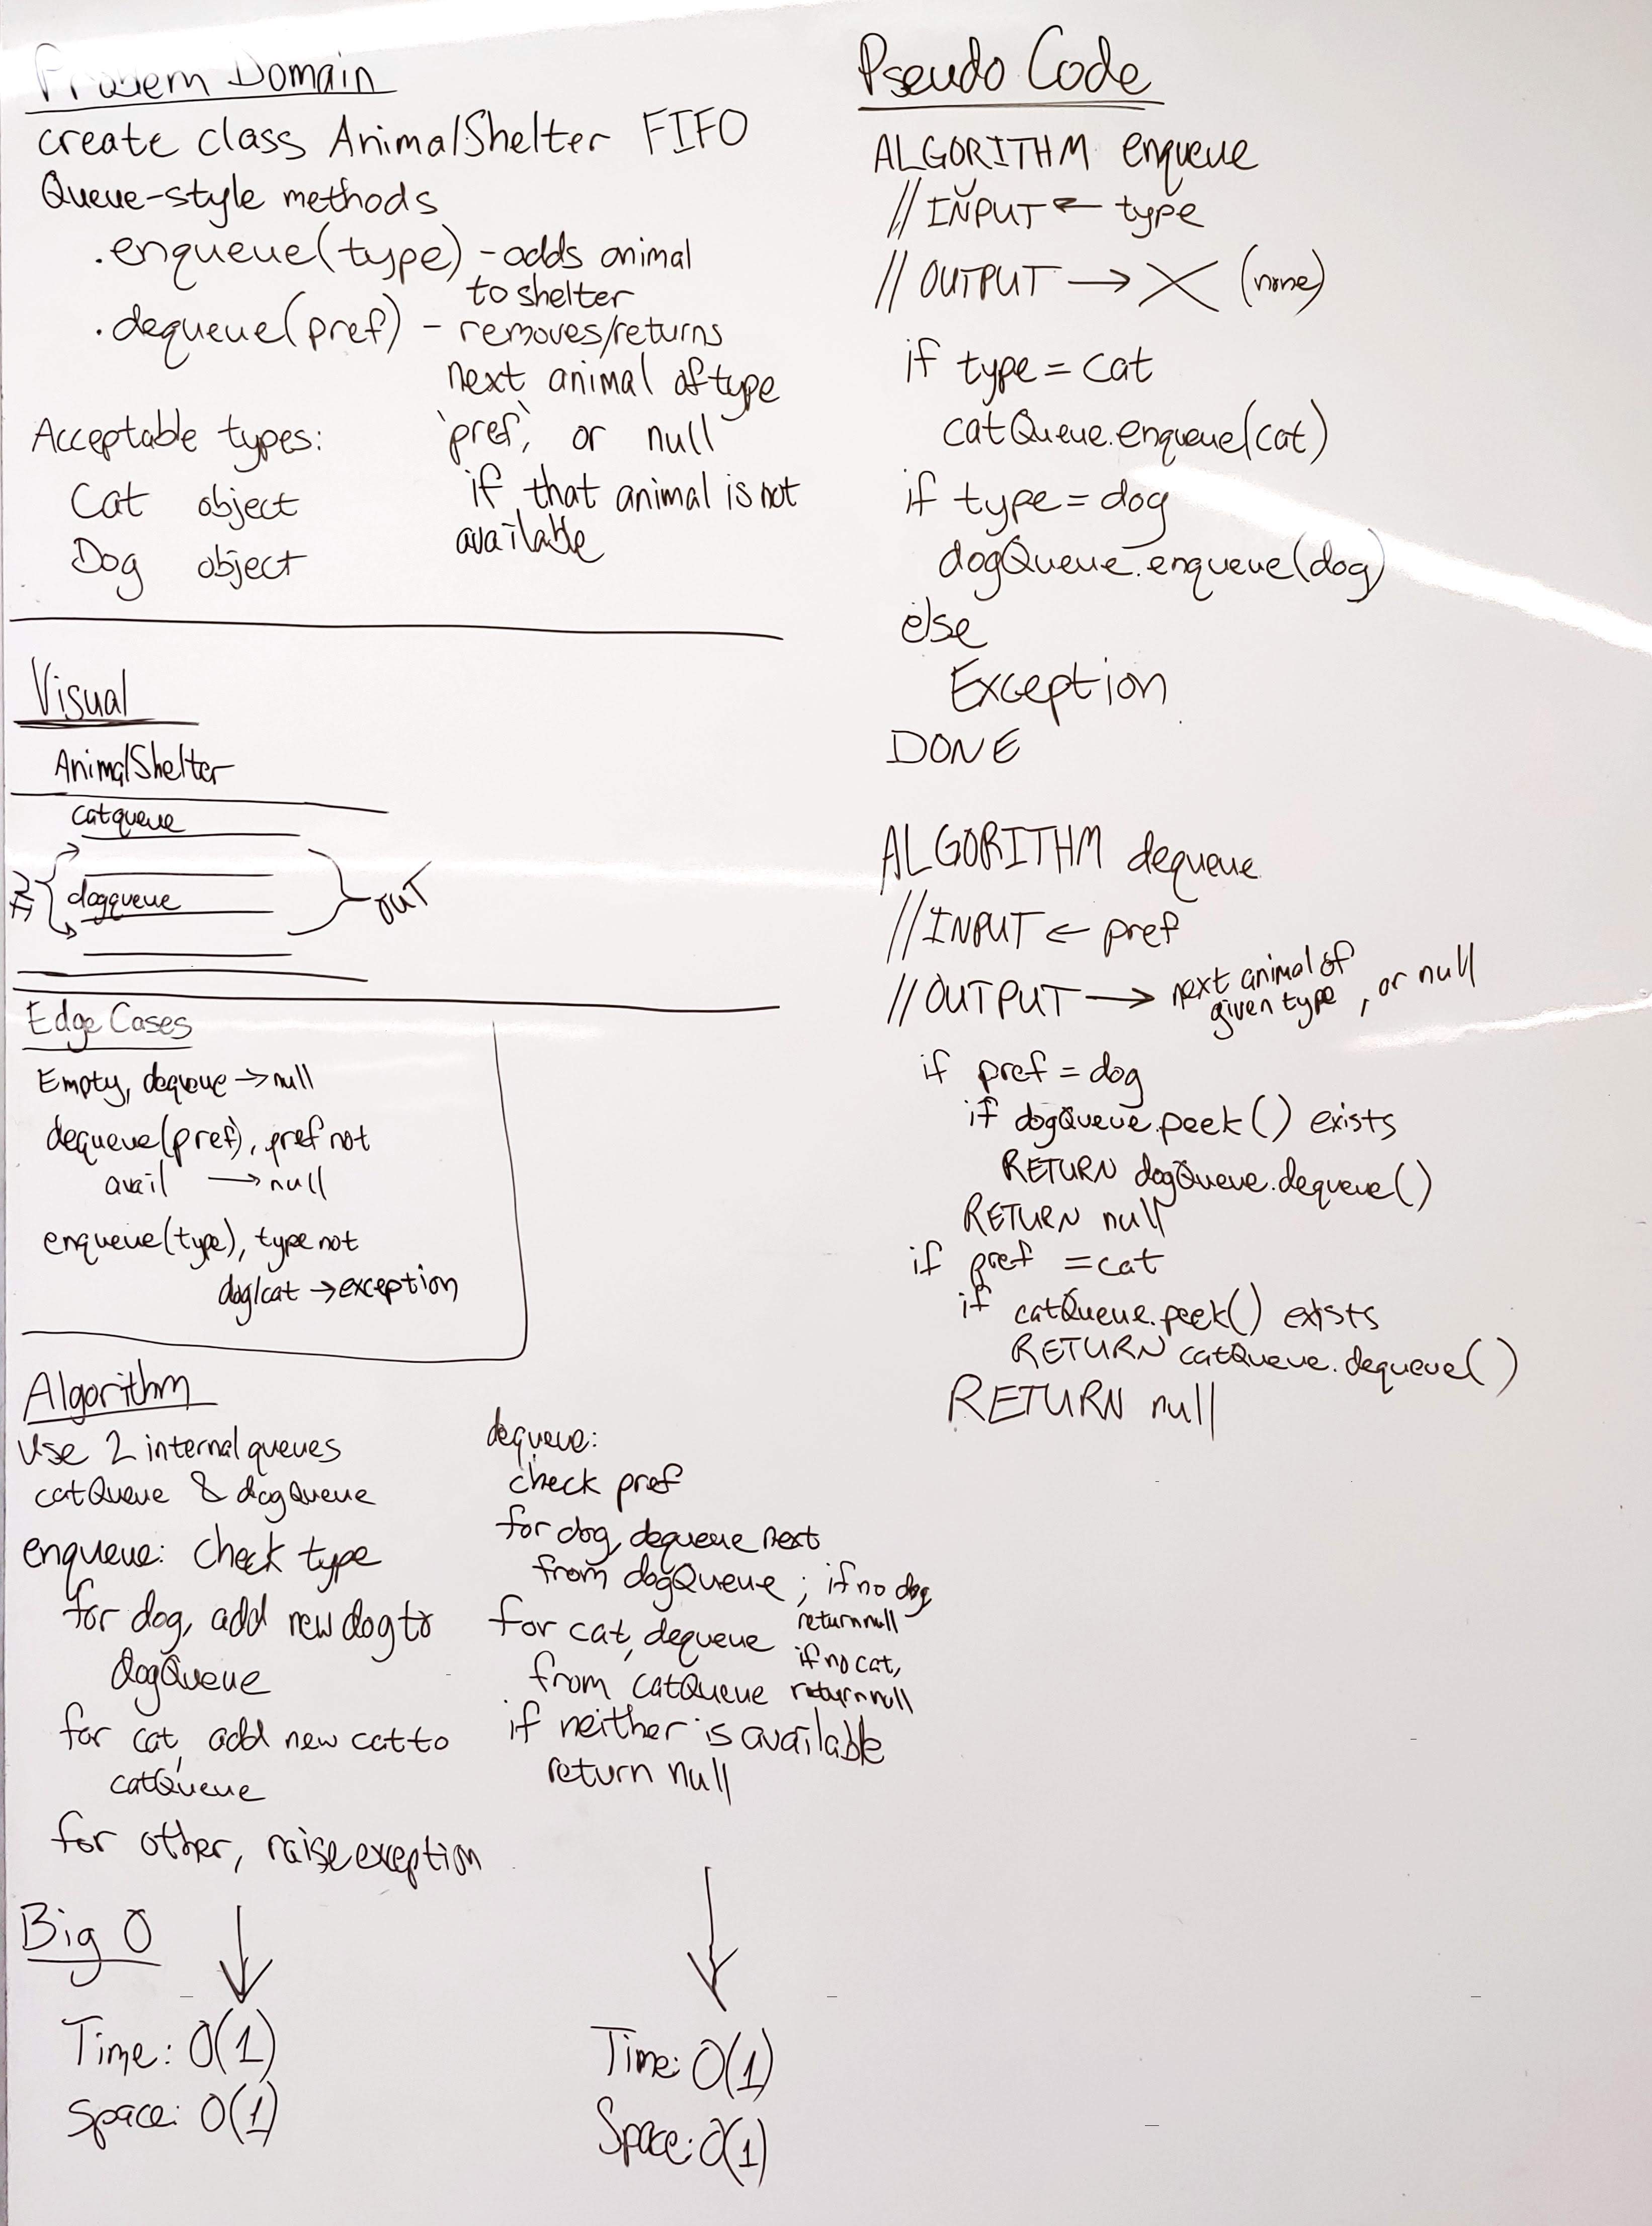 Problem Domain
create class AnimalShelter FIFO
Queue-style methods
.enqueue(type) - adds animal
to shelter
.dequeue(pref) - removes/returns
next animal of type
'pref', or null
if that animal is not
available
Acceptable types:
Cat object
Dog object
Visual
AnimalShelter
catqueue
IN
dogqueue
OUT
Edge Cases
Empty, dequeue → null
dequeue(pref), pref not
avail → null
enqueue(type), type not
dog/cat → exception
Algorithm
Use 2 internal queues
catQueue & dogQueue
enqueue: check type
for dog, add new dog to
dogQueue
for cat, add new cat to
catQueue
for other, raise exception
dequeue:
check pref
for dog, dequeue next
from dogQueue ; if no dog,
return null
for cat, dequeue
from catQueue
if no cat,
return null
if neither is available
return null
Big O
Time: O(1)
Space: O(1)
Time: O(1)
Space: O(1)
Pseudo Code
ALGORITHM enqueue
// INPUT ← type
// OUTPUT → X (none)
if type = cat
catQueue.enqueue(cat)
if type = dog
dogQueue.enqueue(dog)
else
Exception
DONE
ALGORITHM dequeue
// INPUT ← pref
// OUTPUT → next animal of
given type, or null
if pref = dog
if dogQueue.peek() exists
RETURN dogQueue.dequeue()
RETURN null
if pref = cat
if catQueue.peek() exists
RETURN catQueue.dequeue()
RETURN null